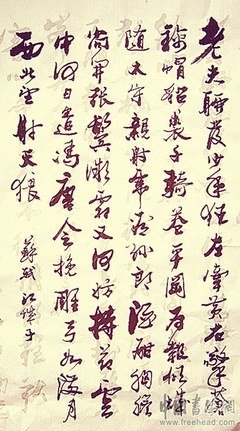 老夫聊發少年狂左牽黃右擎蒼
錦帽貂裘千騎卷平岡為報傾城
隨太守親射虎看孫郎酒酣胸膽
尚開張鬢微霜又何妨持節雲
中何日遣馮唐會挽雕弓如滿月
西北望射天狼
蘇軾江城子
www.freehead.com